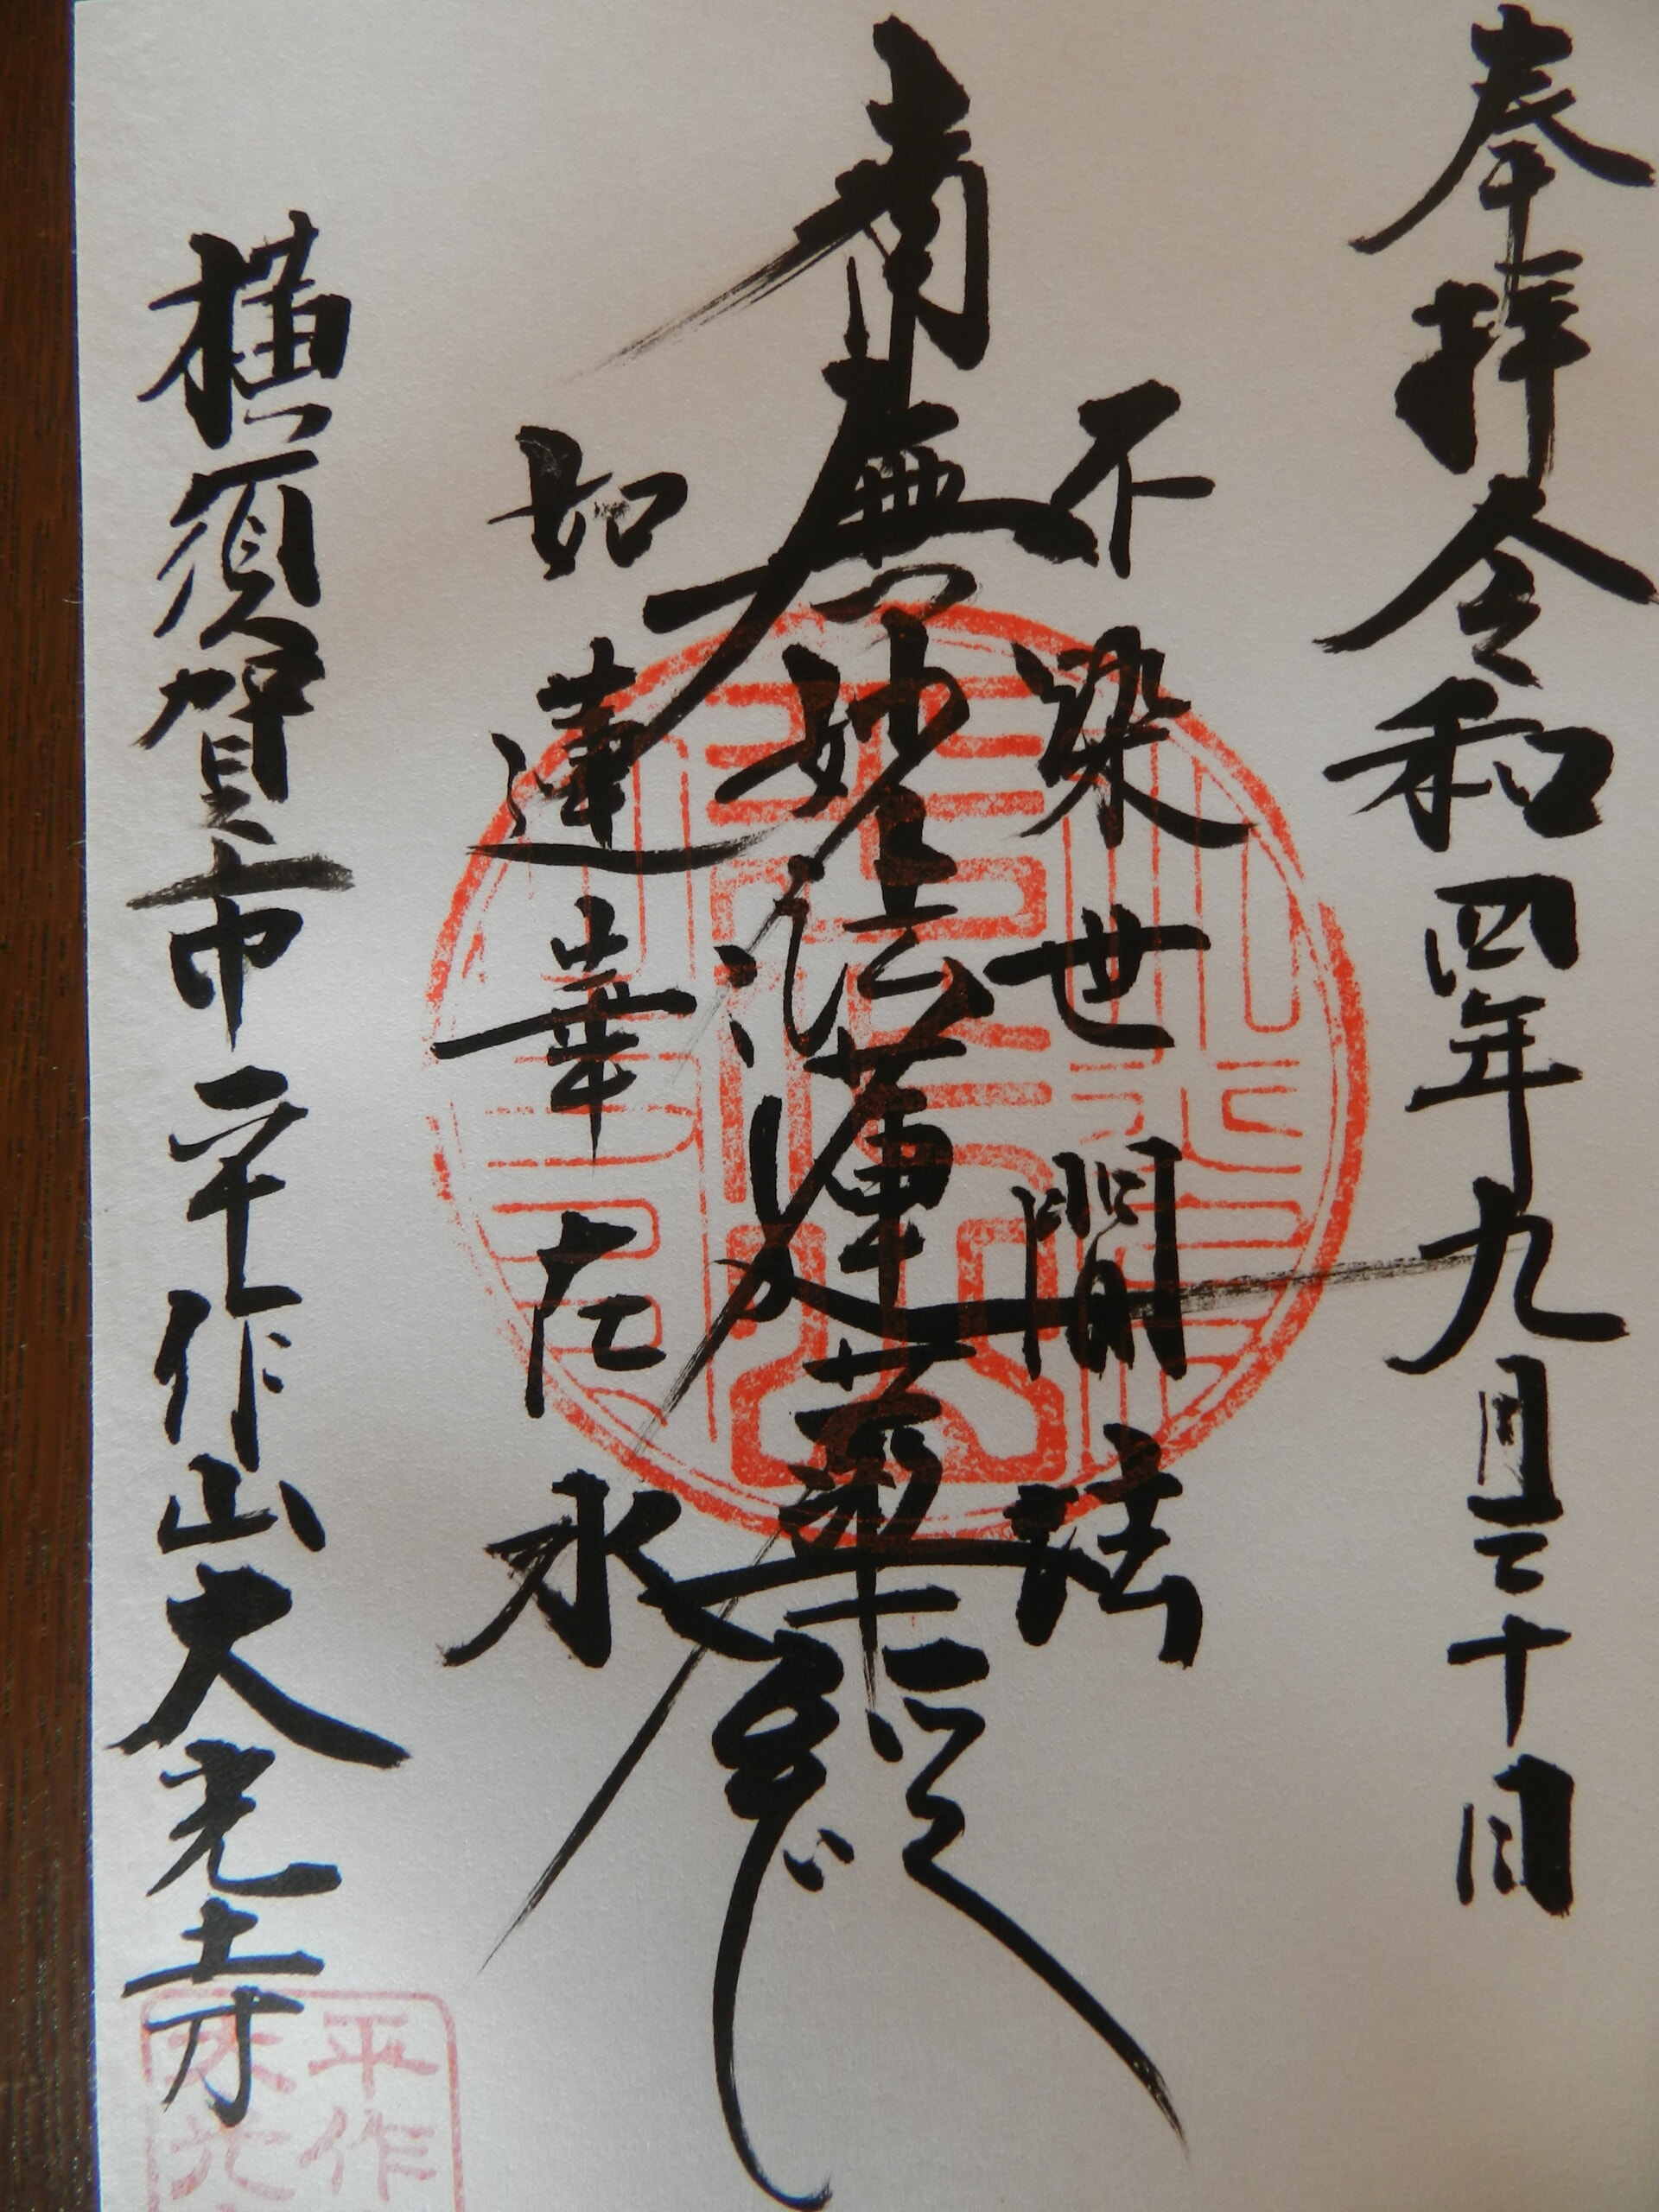 奉拝令和四年九月三十日
不染世間法
南無妙法蓮華経
如蓮華在水
横須賀市平作山大光寺
平作